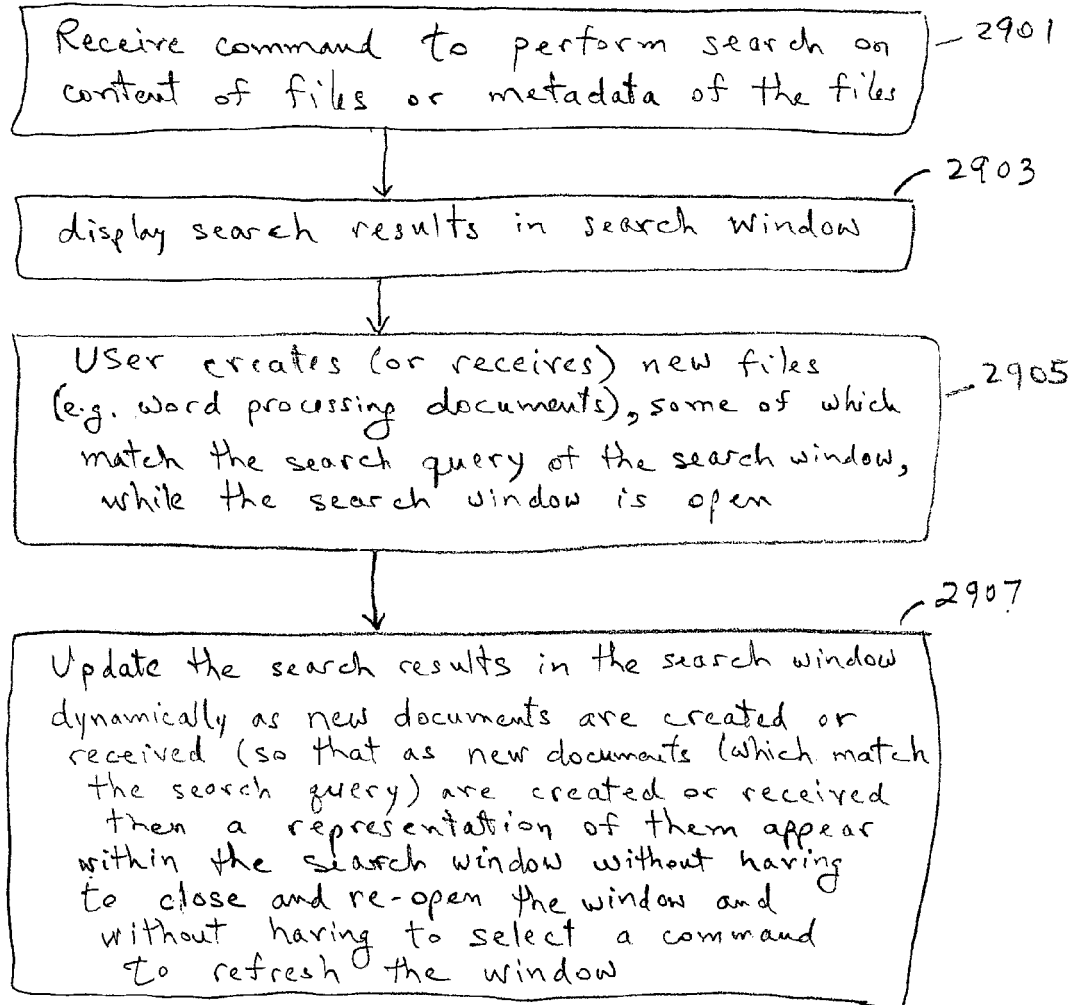 Receive command to perform search on
content of files or metadata of the files
2901
display search results in search window
2903
User creates (or receives) new files
(e.g. word processing documents), some of which
match the search query of the search window,
while the search window is open
2905
Update the search results in the search window
dynamically as new documents are created or
received (so that as new documents (which match
the search query) are created or received
then a representation of them appear
within the search window without having
to close and re-open the window and
without having to select a command
to refresh the window
2907